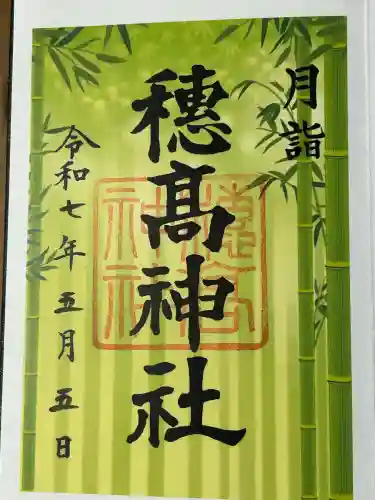 月詣
穂髙神社
穂高神社
令和七年五月五日